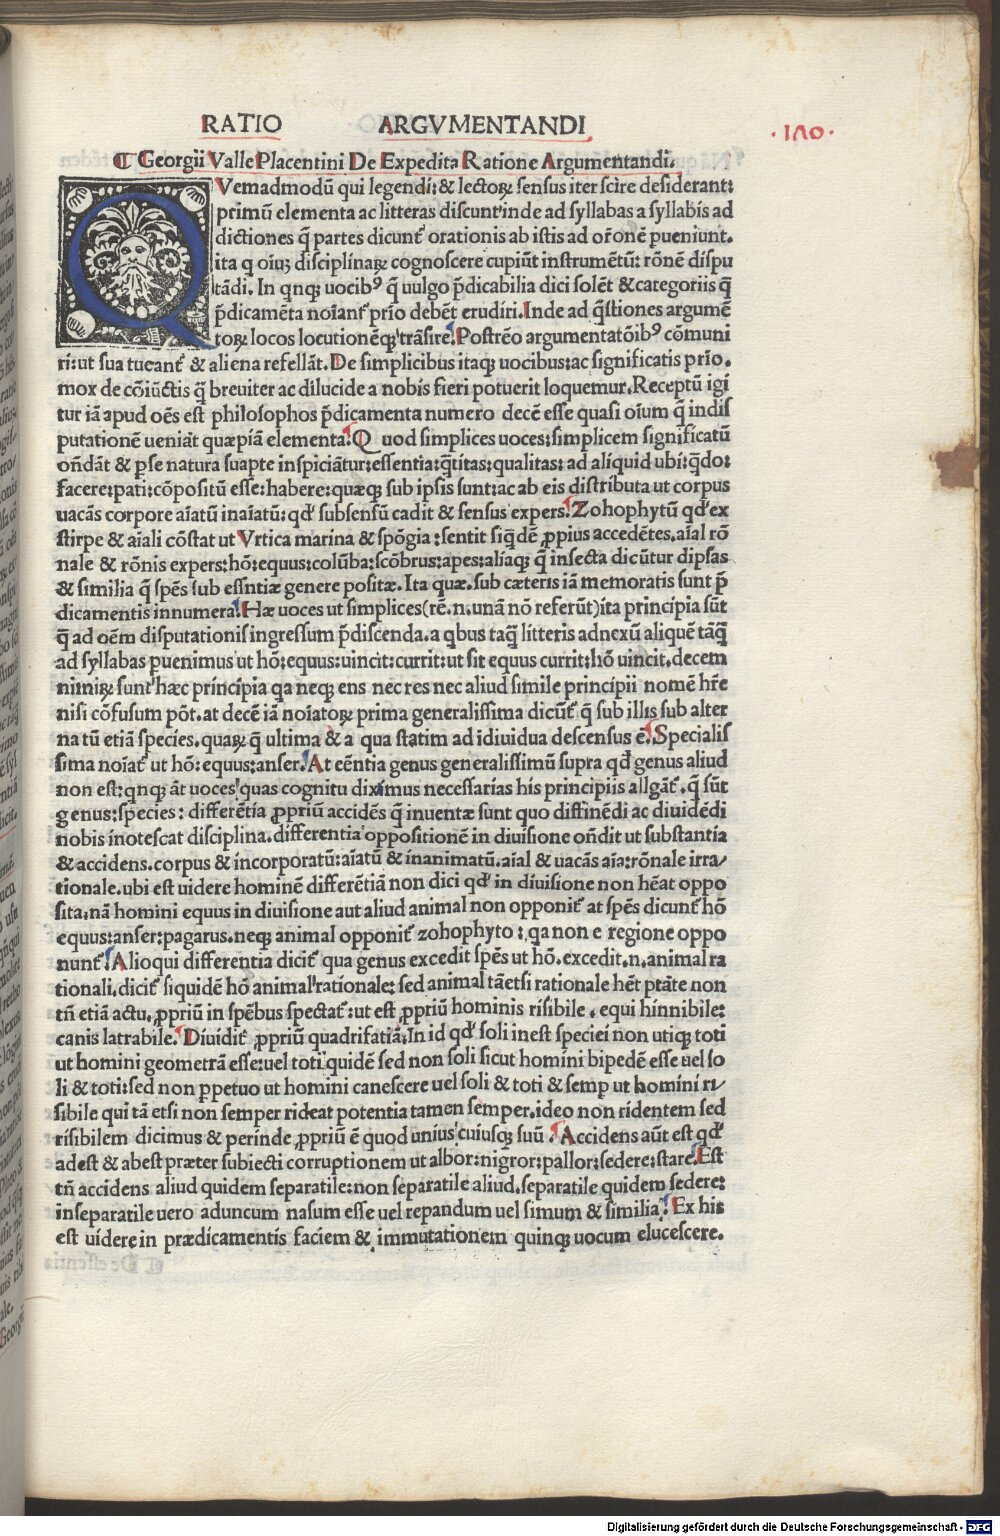 RATIO ARGVMENTANDI
·180·
¶ Georgii Valle Placentini De Expedita Ratione Argumentandi.
QVemadmodū qui legendi: & lectoꝝ sensus iter scire desiderant:
primū elementa ac litteras discunt inde ad syllabas a syllabis ad
dictiones q̄ partes dicunt᷑ orationis ab istis ad or̄onē pueniunt.
ita q oīuꝫ disciplinaꝝ cognoscere cupiūt instrumētū: rōnē dispu
tādi. In qnqꝫ uocibꝰ q̄ uulgo p̄dicabilia dici solēt & categoriis q̄
p̄dicamēta noīant᷑ prīo debēt erudiri. Inde ad q̄stiones argumē
toꝝ locos locutionēqꝫ trāsire. Postrēo argumentatōibꝰ cōmuni
ri: ut sua tueant᷑ & aliena refellāt. De simplicibus itaqꝫ uocibus: ac significatis prīo.
mox de cōiūctis q̄ breuiter ac dilucide a nobis fieri potuerit loquemur. Receptū igi
tur iā apud oēs est philosophos p̄dicamenta numero decē esse quasi oīum q̄ indis
putationē ueniāt quæpiā elementa. Quod simplices uoces: simplicem significatū
oñdāt & ꝑse natura suapte inspiciātur: essentia: q̄titas: qualitas: ad aliquid ubi: q̄do:
facere: pati: cōpositū esse: habere: quæqꝫ sub ipsis sunt: ac ab eis distributa ut corpus
uacās corpore aīatū inaīatū: qđ subsensū cadit & sensus expers. Zohophytū qđ ex
stirpe & aīali cōstat ut Vrtica marina & spōgia: sentit siq̄dē ꝓpius accedētes. aīal rō
nale & rōnis expers: hō: equus: colūba: scōbrus: apes: aliæqꝫ q̄ insecta dicūtur dipsas
& similia q̄ spēs sub essntiæ genere positæ. Ita quæ sub cæteris iā memoratis sunt p̄
dicamentis innumera. Hæ uoces ut simplices (rē.n.unā nō referūt) ita principia sūt
q̄ ad oēm disputationis ingressum p̄discenda. a qbus taq̄ litteris adnexū aliquē tāq̄
ad syllabas puenimus ut hō: equus: uincit: currit: ut sit equus currit: hō uincit. decem
nimiꝝ sunt hæc principia qa neqꝫ ens nec res nec aliud simile principii nomē hr̄e
nisi cōfusum pōt. at decē iā noīatoꝝ prima generalissima dicūt᷑ q̄ sub illis sub alter
na tū etiā species. quaꝝ q̄ ultima & a qua statim ad idiuidua descensus ē. Specialis
sima noīat᷑ ut hō: equus: anser. At eēntia genus generalissimū supra qđ genus aliud
non est: qnqꝫ āt uoces quas cognitu diximus necessarias his principiis allgāt᷑. q̄ sūt
genus: species: differētia ꝓpriū accidēs q̄ inuentæ sunt quo diffinēdi ac diuidēdi
nobis inotescat disciplina. differentia oppositionē in diuisione oñdit ut substantia
& accidens. corpus & incorporatū: aīatū & inanimatū. aīal & uacās aīa: rōnale irra/
tionale. ubi est uidere hominē differētiā non dici qđ in diuisione non hēat oppo
sita: nā homini equus in diuisione aut aliud animal non opponit᷑ at spēs dicunt᷑ hō
equus: anser: pagarus. neqꝫ animal opponit᷑ zohophyto: qa non e regione oppo
nunt᷑. Alioqui differentia dicit᷑ qua genus excedit spēs ut hō. excedit.n. animal ra
tionali. dicit᷑ siquidē hō animal rationale: sed animal tāetsi rationale hēt ptāte non
tñ etiā actu. ꝓpriū in spēbus spectat᷑: ut est ꝓpriū hominis risibile. equi hinnibile:
canis latrabile. Diuidit᷑ ꝓpriū quadrifatiā. In id qđ soli inest speciei non utiqꝫ toti
ut homini geometrā esse: uel toti quidē sed non soli sicut homini bipedē esse uel so
li & toti: sed non ꝑpetuo ut homini canescere uel soli & toti & semp ut homini ri/
sibile qui tā etsi non semper rideat potentia tamen semper. ideo non ridentem sed
risibilem dicimus & perinde ꝓpriū ē quod unius cuiusqꝫ suū. Accidens aūt est qđ
adest & abest præter subiecti corruptionem ut albor: nigror: pallor: sedere: stare. Est
tñ accidens aliud quidem separatile: non separatile aliud. separatile quidem sedere:
inseparatile uero aduncum nasum esse uel repandum uel simum & similia. Ex his
est uidere in prædicamentis faciem & immutationem quinqꝫ uocum elucescere.
Digitalisierung gefördert durch die Deutsche Forschungsgemeinschaft - DFG